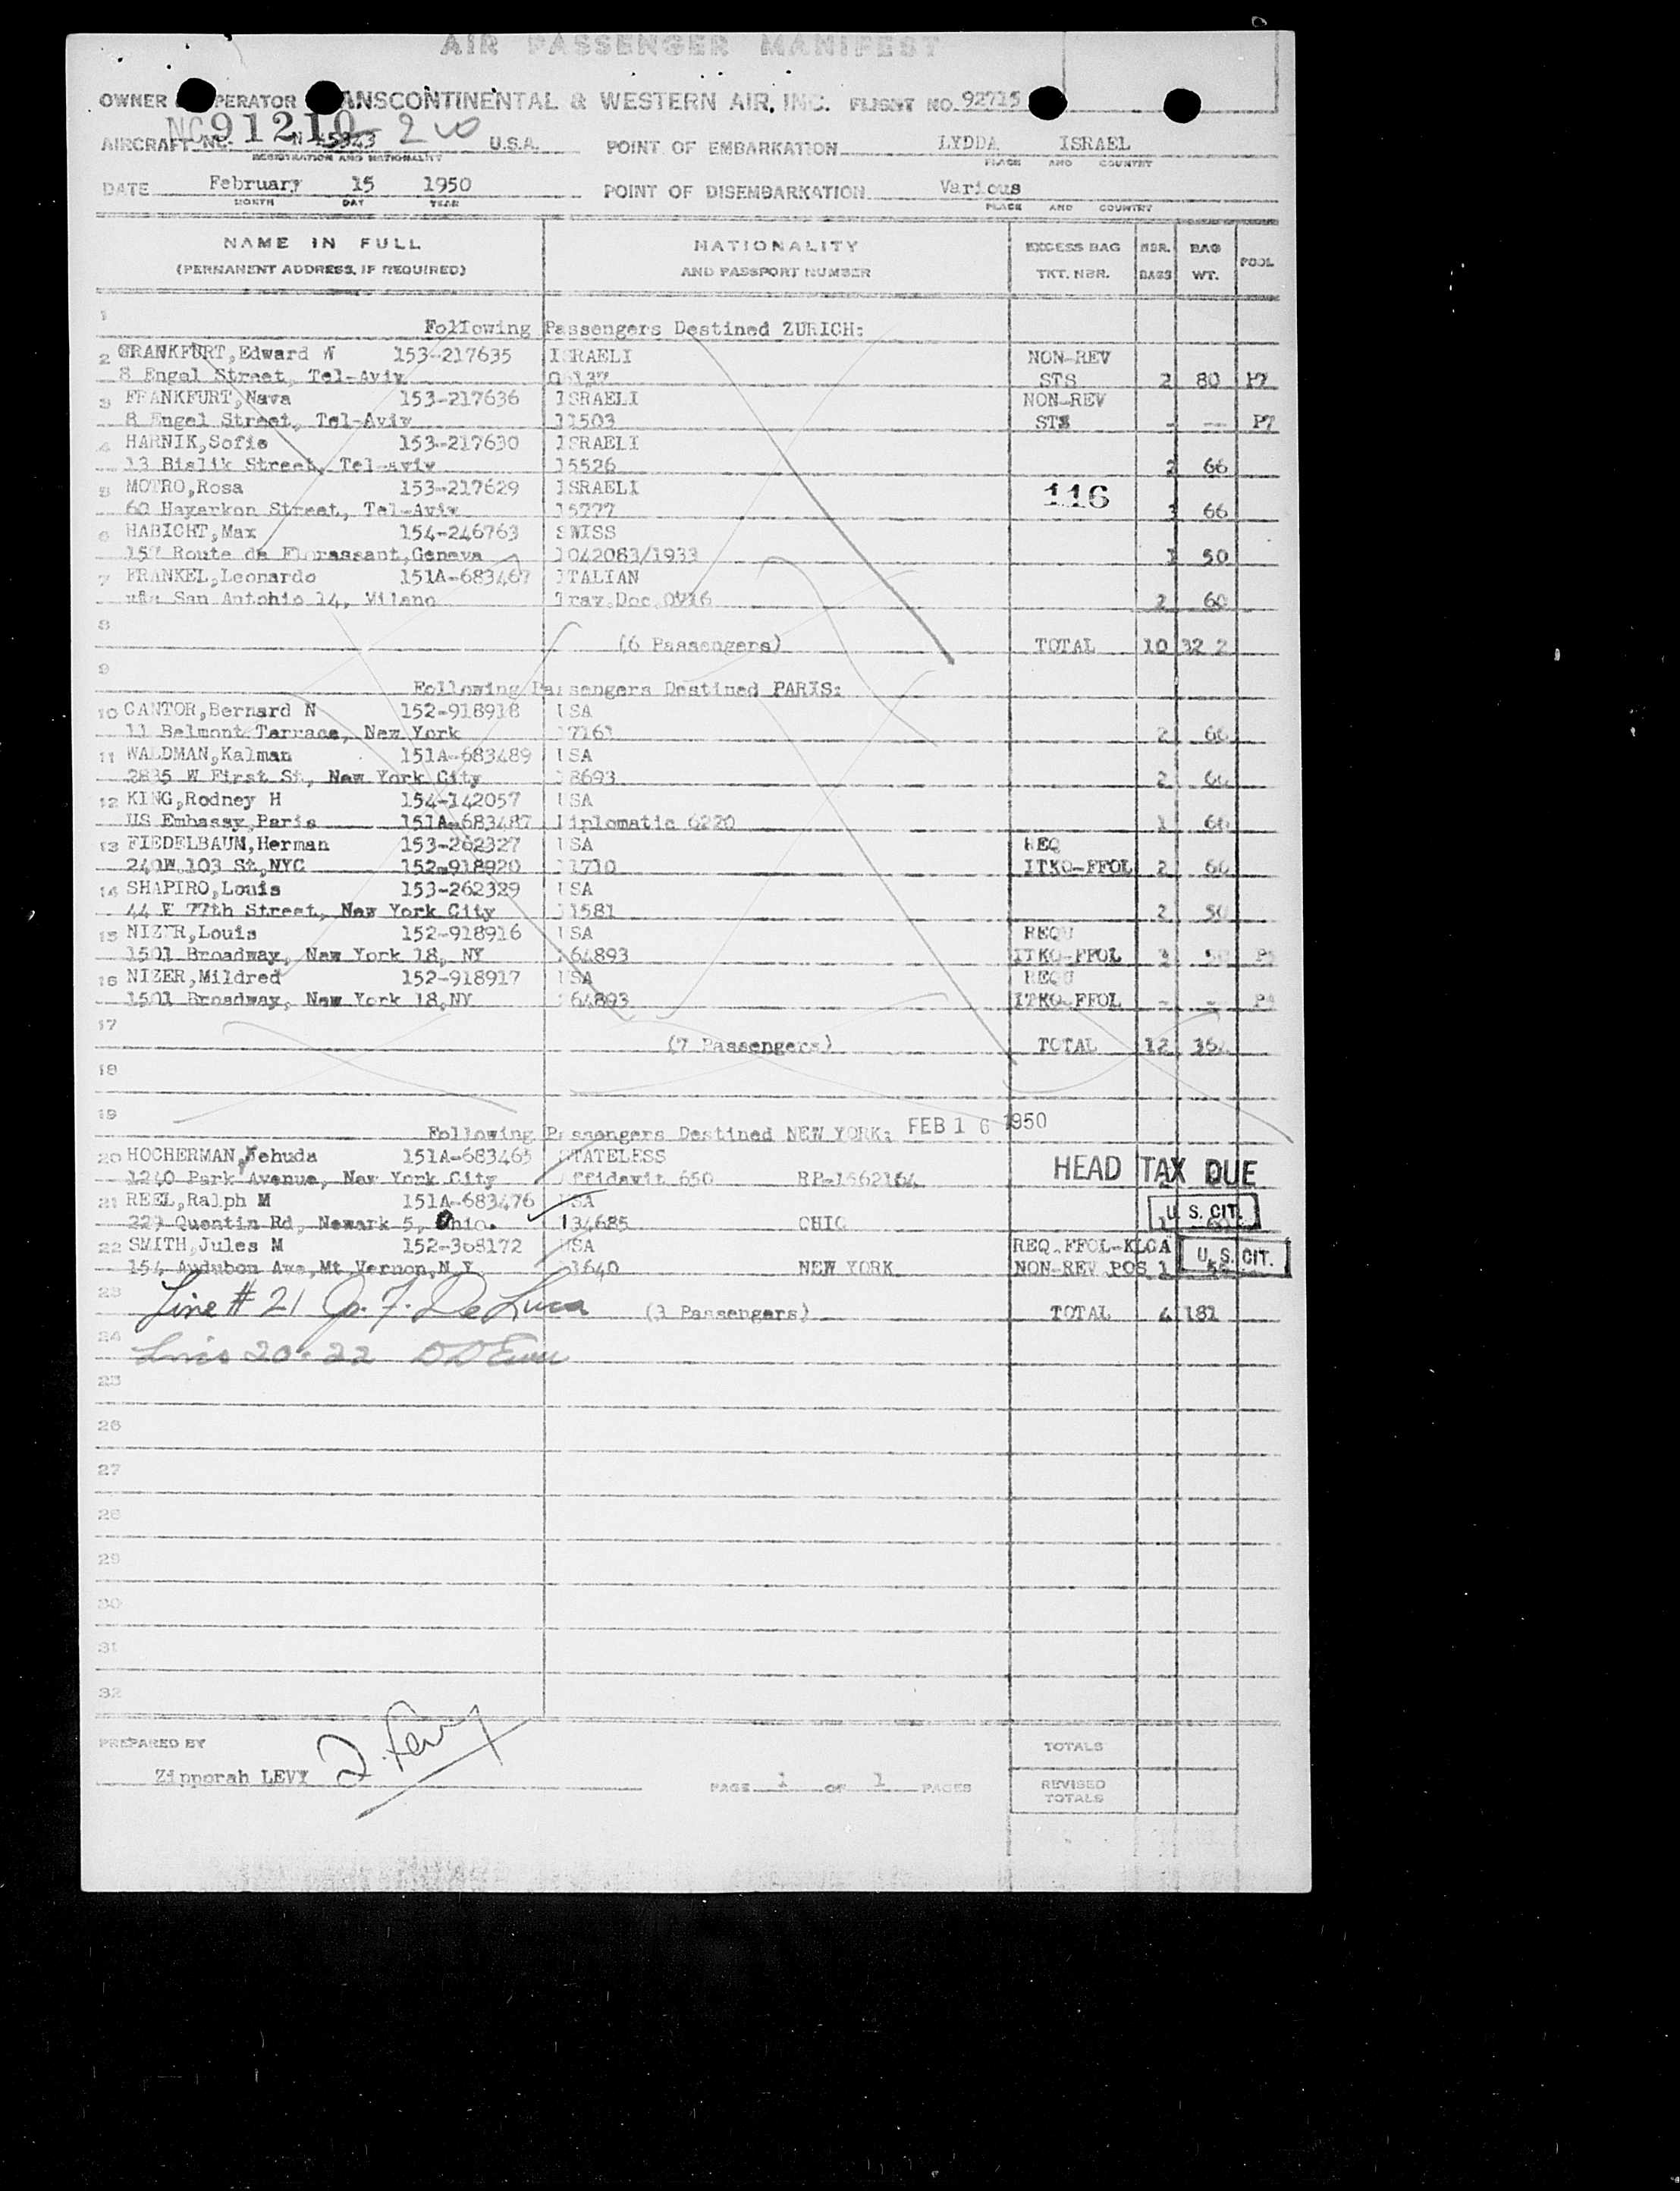 AIR PASSENGER MANIFEST
OWNER PERATOR ANSCONTINENTAL & WESTERN AIR, INC. FLIGHT NO. 92715
NC91210
AIRCRAFT NO. N 45343 U.S.A. POINT OF EMBARKATION LYDDA ISRAEL
REGISTRATION AND NATIONALITY PLACE AND COUNTRY
DATE February 15 1950 POINT OF DISEMBARKATION Various
MONTH DAY YEAR PLACE AND COUNTRY
NAME IN FULL NATIONALITY EXCESS BAG NBR. BAG POOL
(PERMANENT ADDRESS, IF REQUIRED) AND PASSPORT NUMBER TKT. NBR. BAGS WT.
1
Following Passengers Destined ZURICH:
2 FRANKFURT,Edward W 153-217635 ISRAELI NON-REV
8 Engel Street, Tel-Aviv STS 2 80 P7
3 FRANKFURT,Nava 153-217636 ISRAELI NON-REV
8 Engel Street, Tel-Aviv 11503 STS - -- P7
4 HARNIK,Sofie 153-217630 ISRAELI
13 Bialik Street, Tel-aviv 15526 2 66
5 MOTRO,Rosa 153-217629 ISRAELI 116
60 Hayarkon Street, Tel-Aviv 15777 3 66
6 HABICHT,Max 154-246763 SWISS
157 Route de Florassant,Geneva 1042083/1933 1 50
7 FRANKEL,Leonardo 151A-683467 ITALIAN
San Antohio 14, Milano Trav.Doc.0916 2 60
8
(6 Passengers) TOTAL 10 32 2
9
Following Passengers Destined PARIS:
10 CANTOR,Bernard N 152-918918 USA
11 Belmont Terrace, New York 7161 2 66
11 WALDMAN,Kalman 151A-683489 USA
2885 W First St, New York City 8693 2
12 KING,Rodney H 154-142057 USA
US Embassy,Paris 151A-683487 Diplomatic 6220 1 66
13 FIEDELBAUM,Herman 153-262327 USA REQ
240W 103 St,NYC 152-918920 1710 ITKO-FFOL 2 66
14 SHAPIRO,Louis 153-262329 USA
44 E 77th Street, New York City 1581 2 50
15 NIZER,Louis 152-918916 USA REQU
1501 Broadway, New York 18, NY 64893 ITKO-FFOL 3
16 NIZER,Mildred 152-918917 USA REQU
1501 Broadway, New York 18,NY 64893 ITKO-FFOL - --
17
(7 Passengers) TOTAL 12
18
19
Following Passengers Destined NEW YORK: FEB 16 1950
20 HOCHERMAN,Yehuda 151A-683465 STATELESS HEAD TAX DUE
1240 Park Avenue, New York City Affidavit 650 RP-1562164
21 REEL,Ralph M 151A-683476 USA U.S. CIT.
227 Quentin Rd, Newark 5, Ohio. 134685 OHIO 1
22 SMITH,Jules M 152-308172 USA REQ.FFOL-KLGA U.S. CIT.
154 Audubon Ave,Mt Vernon,N.Y. 1640 NEW YORK NON-REV POS 1
23 Line # 21 De Luca (3 Passengers) TOTAL 4 181
24 Lines 20-22
25
26
27
28
29
30
31
32
PREPARED BY TOTALS
Zipporah LEVY Z. Levy PAGE 1 OF 1 PAGES REVISED
TOTALS